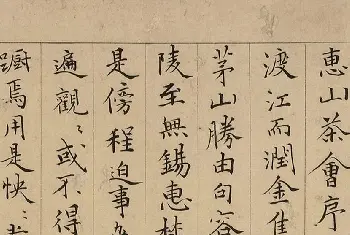 惠山茶會序
渡江而潤金焦
茅山勝由句容
陵至無錫惠
是傍程迫事
遍觀〻或不得
蹰焉用是怏〻